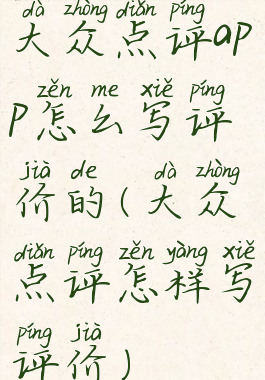 dà zhòng diǎn píng
大众点评ap
zěn me xiě píng
p怎么写评
jià de dà zhòng
价的(大众
diǎn píng zěn yàng xiě
点评怎样写
píng jià
评价)